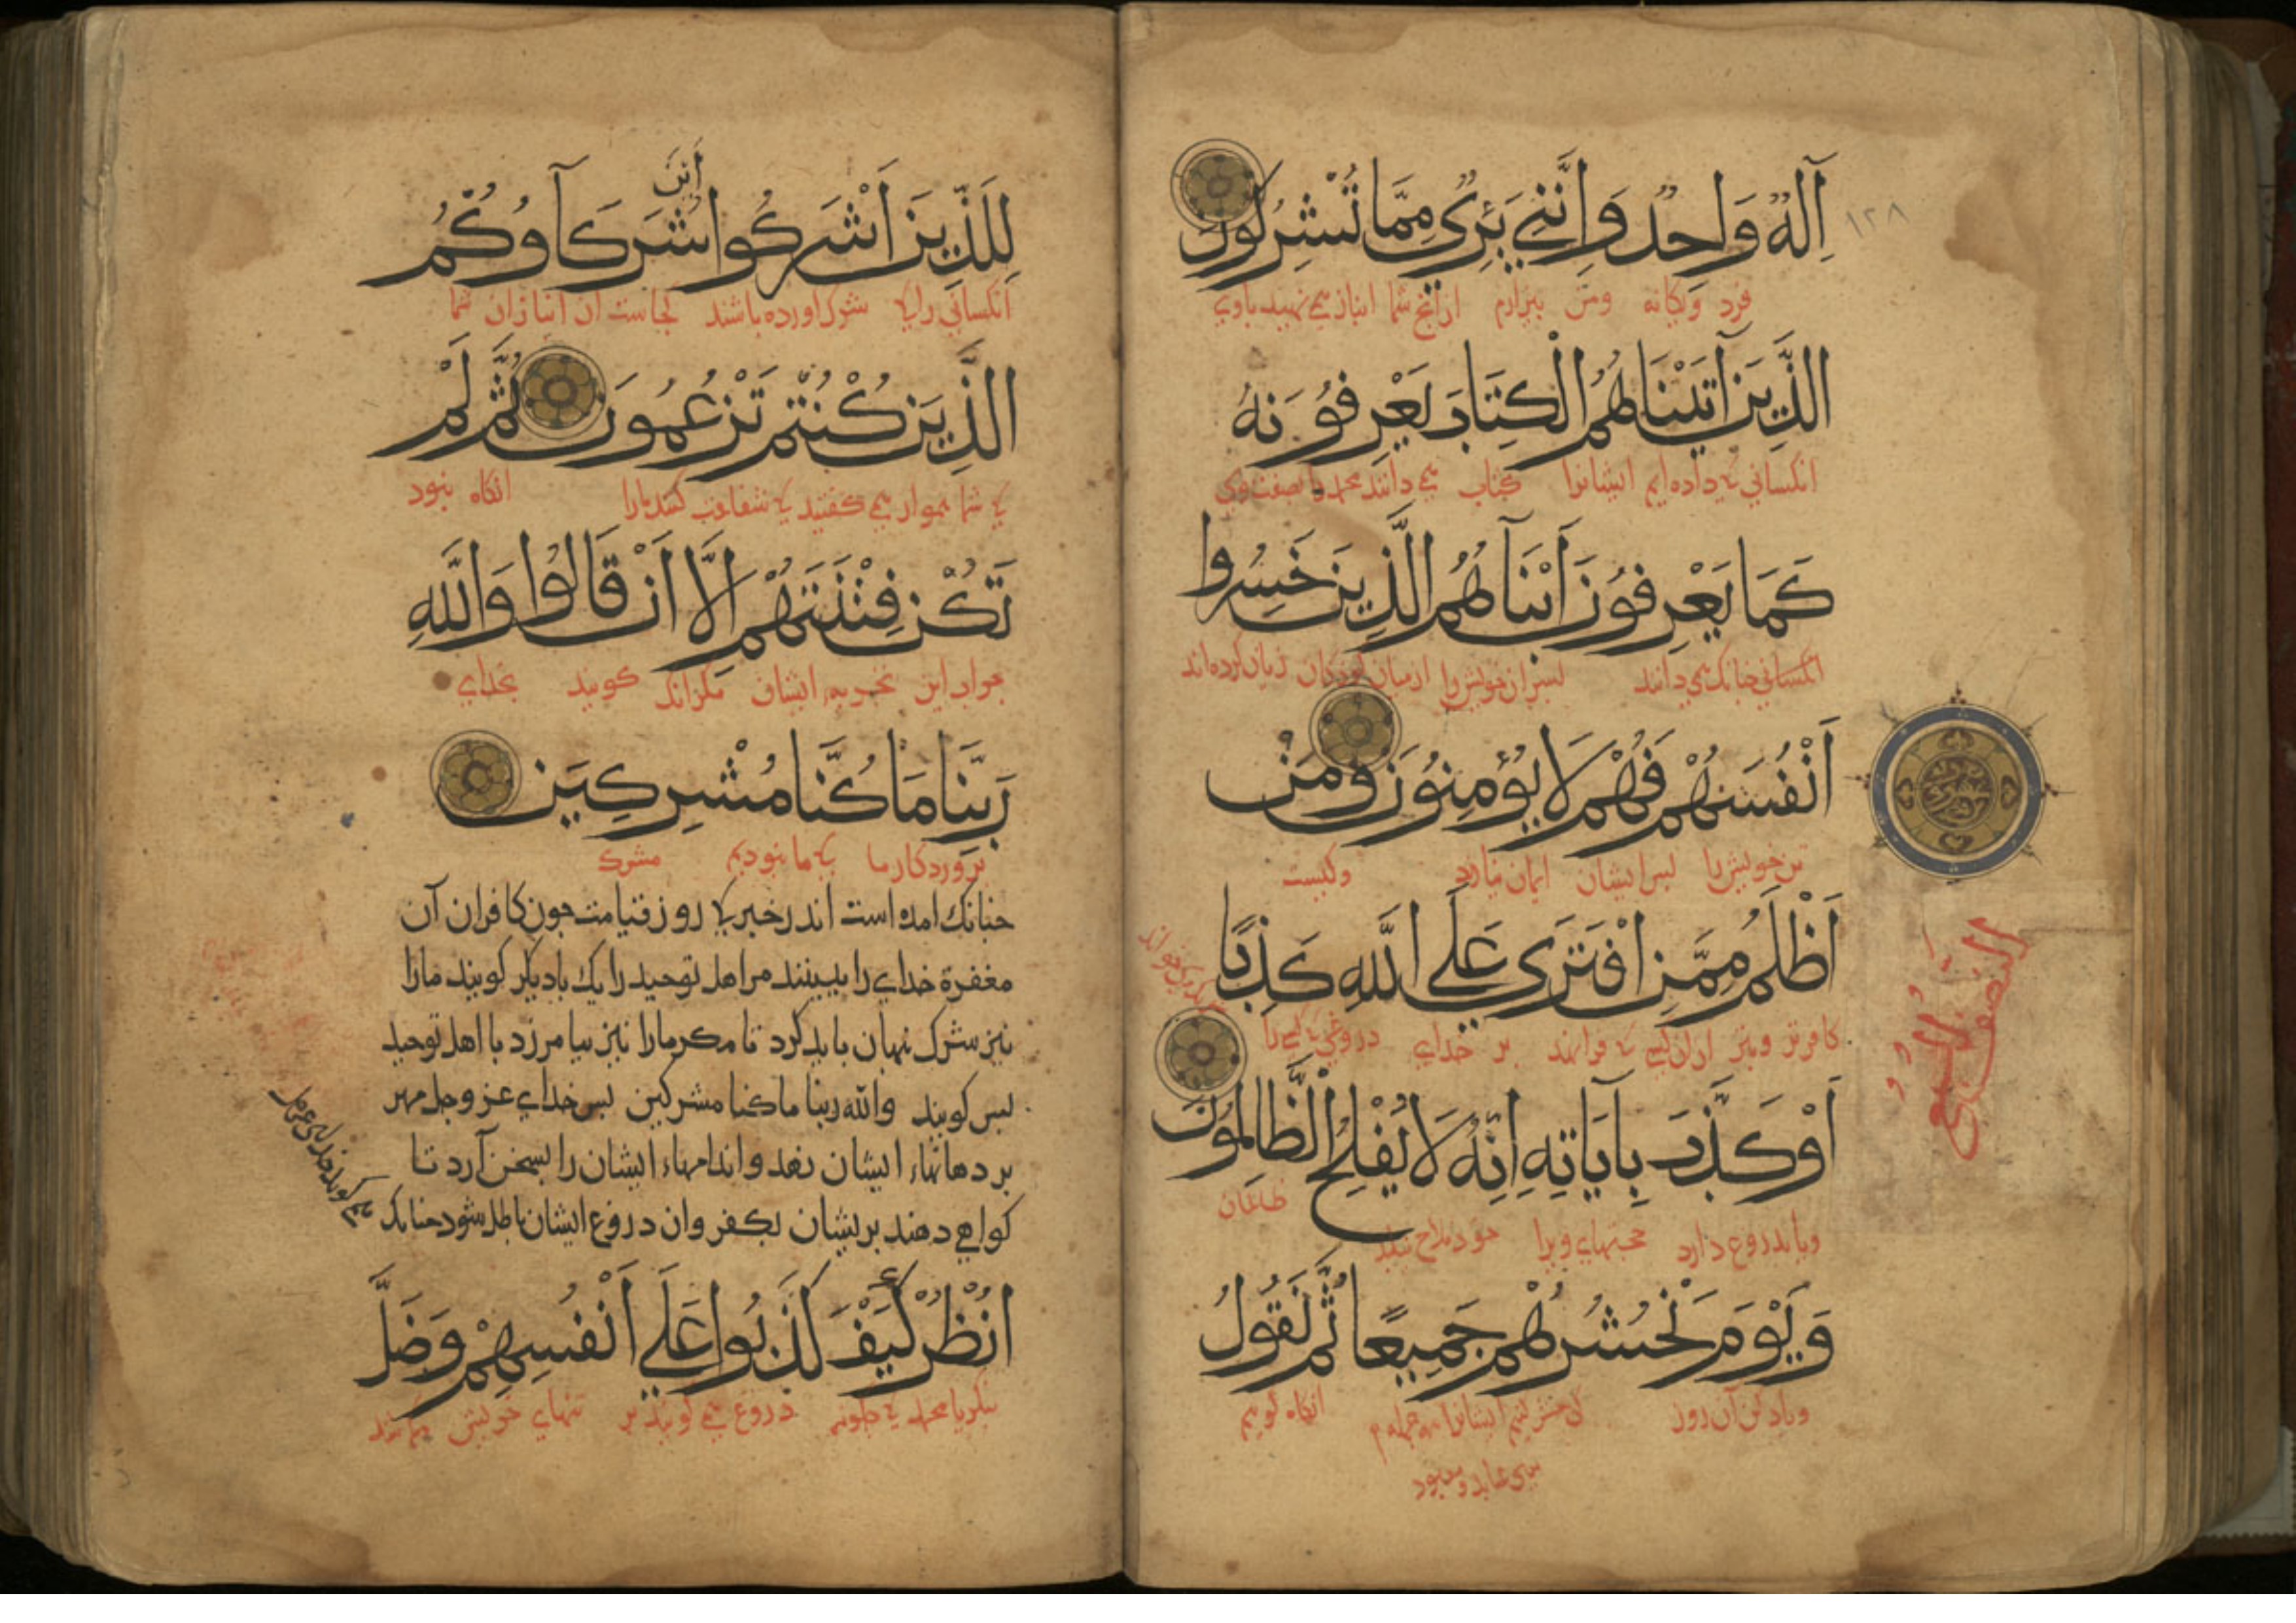 ١٢٨
اِلٰهٌ وَاحِدٌ وَاِنَّنِي بَرِئٌ مِمَّا تُشْرِكُونَ
فرد و یکانه ومن بیزارم ازانج شما انباز می نهید باوی
الَّذِينَ آتَيْنَاهُمُ الْكِتَابَ يَعْرِفُونَهُ
انکسانی که داده ایم ایشانرا کتاب می دانند محمد را بصفت وی
كَمَا يَعْرِفُونَ اَبْنَآهُمُ الَّذِينَ خَسِرُوا
انکسانی جنانک می دانند بسران خویش را ازمیان کودکان زیان کرده اند
اَنْفُسَهُمْ فَهُمْ لَا يُؤْمِنُونَ وَمَنْ
تن خویش را بس ایشان ایمان نیارد وکیست
اَظْلَمُ مِمَّنِ افْتَرَى عَلَى اللَّهِ كَذِبًا
کافرتر وبتر ازان کسی که فرا نهد بر خدای دروغی که کسی را
اَوْ كَذَّبَ بِآيَاتِهِ اِنَّهُ لَا يُفْلِحُ الظَّالِمُونَ
ظالمان
ویا بدروغ دارد حجتهای ویرا
وَيَوْمَ نَحْشُرُهُمْ جَمِيعًا ثُمَّ نَقُولُ
ویاد کن آن روز که حشر کنیم ایشانرا انکاه کویم
النصف
السبع
اَيْنَ
لِلَّذِينَ اَشْرَكُوا شُرَكَآوُكُمُ
انکسانی را که شرک اورده باشند کجاست ان انبازان شما
الَّذِينَ كُنْتُمْ تَزْعُمُونَ ثُمَّ لَمْ
که شما بموارہ می کفتید که شفاعت کنند مارا انکاه نبود
تَكُنْ فِتْنَتَهُمْ اِلَّا اَنْ قَالُوا وَاللَّهِ
جواب این تجربه ایشان مکر انک کویند بخدای
رَبِّنَا مَا كُنَّا مُشْرِكِينَ
بروردکار ما که ما نبودیم مشرک
جنانک امده است اندر خبر که روز قیامت جون کافران آن
مغفرة خدای را ببینند مر اهل توحید را یک با دیکر کویند مارا
نیز شرک نهان باید کرد تا مکر مارا نیز بیامرزد با اهل توحید
بس کویند والله ربنا ما کنا مشرکین بس خدای عز وجل مهر
بر دهانهاء ایشان نهد واندامهاء ایشان را بسخن آرد تا
کواهی دهند بریشان بکفر وان دروغ ایشان باطل شود جنانک
می کوید خدای عز وجل
اُنْظُرْ كَيْفَ كَذَبُوا عَلَى اَنْفُسِهِمْ وَضَلَّ
بنکر یا محمد که جکونه دروغ می کویند بر تنهای خویش